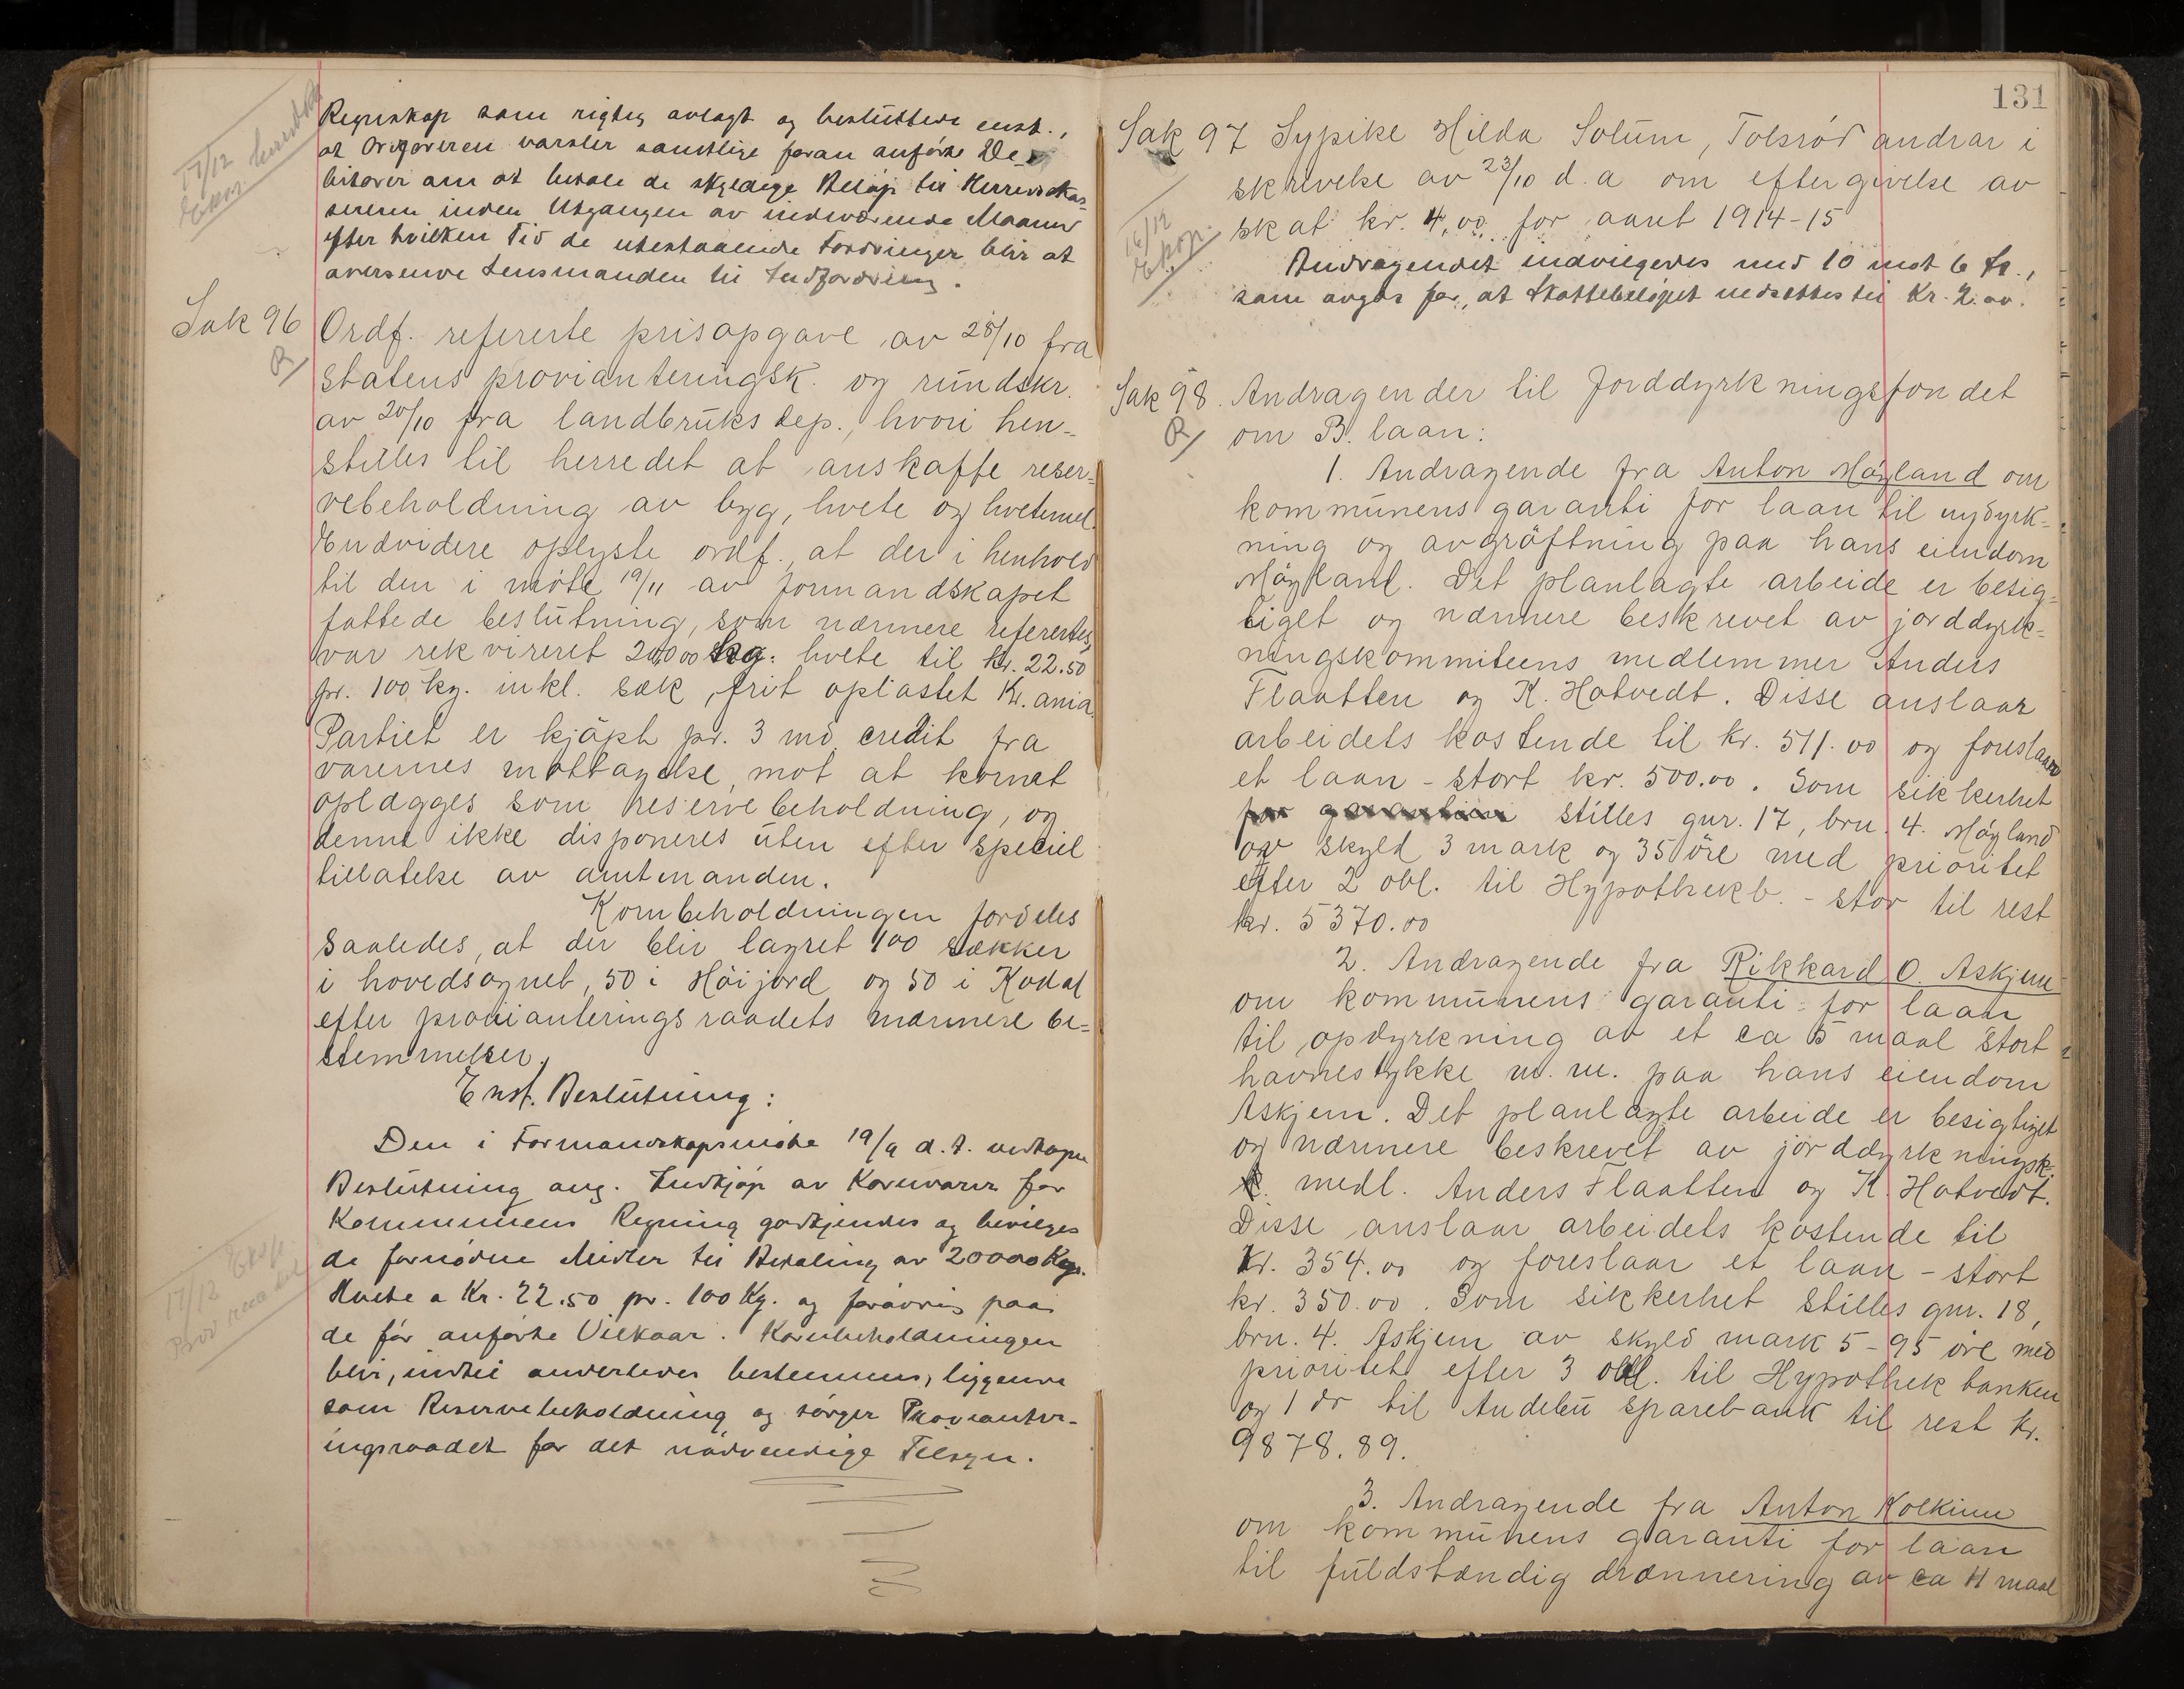 Regnskap som rigtig avlagt og besluttede enst.,
at Ordføreren varsler samtlige foran anførte De-
bitorer om at betale de skyldige Beløp til Herredskas-
sereren inden Utgangen av indeværende Maaned
efter hvilken Tid de utestaaende Fordringer blir at
oversende Lensmanden til Indfordring.
17/12
Sak 96 Ordf. refererte prisopgave av 28/10 fra
statens provianteringsk. og rundskr.
av 20/10 fra landbruksdep., hvori hen-
stilles til herredet at anskaffe reser-
vebeholdning av byg, hvete og hvetemel.
Endvidere oplyste ordf., at der i henhold
til den i møte 19/11 av formandskapet
fattede beslutning, som nærmere refertes,
var rekvireret 20000 kg. hvete til Kr. 22.50
pr. 100 kg. inkl. sæk, frit oplastet Kr.ania.
Partiet er kjøpt pr. 3 md credit fra
varernes mottagelse, mot at kornet
oplægges som reservebeholdning, og
denne ikke disponeres uten efter speciel
tillatelse av amtmanden.
Kornbeholdningen fordeles
saaledes, at der blir lagret 100 sækker
i hovedsognet, 50 i Høijord og 50 i Kodal
efter provianteringsraadets nærmere be-
stemmelser.
Enst. Beslutning:
Den i Formandskapsmøte 19/9 d.A. vedtagne
Beslutning ang. Indkjøp av Kornvarer for
Kommunens Regning godkjendes og bevilges
de fornødne Midler til Betaling av 20000 Kg.
Hvete a Kr. 22.50 pr. 100 Kg. og forøvrig paa
de før anførte Vilkaar. Kornbeholdningen
blir, indtil anderledes bestemmes, liggende
som Reservebeholdning og sørger Provianter-
ingsraadet for det nødvendige Tilsyn.
17/12 Eksp.
131
Sak 97 Sypike Hilda Solum, Tolsrød andrar i
skrivelse av 23/10 d.a om eftergivelse av
skat kr. 4,00 for aaret 1914-15
16/12
Eksp.
Andragendet indvilgedes med 10 mot 6 St.,
som avgos for, at Skattebeløpet nedsættes til Kr. 2.00.
Sak 98. Andragender til Jorddyrkningsfondet
om B. laan:
1. Andragende fra Anton Møyland om
kommunens garanti for laan til nydyrk-
ning og avgrøftning paa hans eiendom
Møyland. Det planlagte arbeide er besig-
tiget og nærmere beskrevet av jorddyrk-
ningskommiteens medlemmer Anders
Flaatten og K. Hotvedt. Disse anslaar
arbeidets kostende til kr. 511.00 og foreslaar
et laan - stort kr. 500.00. Som sikkerhet
for garantien stilles gnr. 17, brn. 4. Møyland
av skyld 3 mark og 35 øre med prioritet
efter 2 obl. til Hypothekb. - stor til rest
kr. 5370.00
2. Andragende fra Rikkard O. Askjem
om kommunens garanti for laan
til opdyrkning av et ca 5 maal stort
havnestykke m.m. paa hans eiendom
Askjem. Det planlagte arbeide er besigtiget
og nærmere beskrevet av jorddyrkningsk.
medl. Anders Flaatten og K. Hotvedt.
Disse anslaar arbeidets kostende til
Kr. 354.00 og foreslaar et laan - stort
kr. 350.00. Som sikkerhet stilles gnr. 18,
brn. 4. Askjem av skyld mark 5-95 øre med
prioritet efter 3 obl. til Hypothekbanken
og 1 do til Andebu sparebank til rest kr.
9878.89.
3. Andragende fra Anton Kolkinn
om kommunens garanti for laan
til fuldstændig drænnering av ca 11 maal